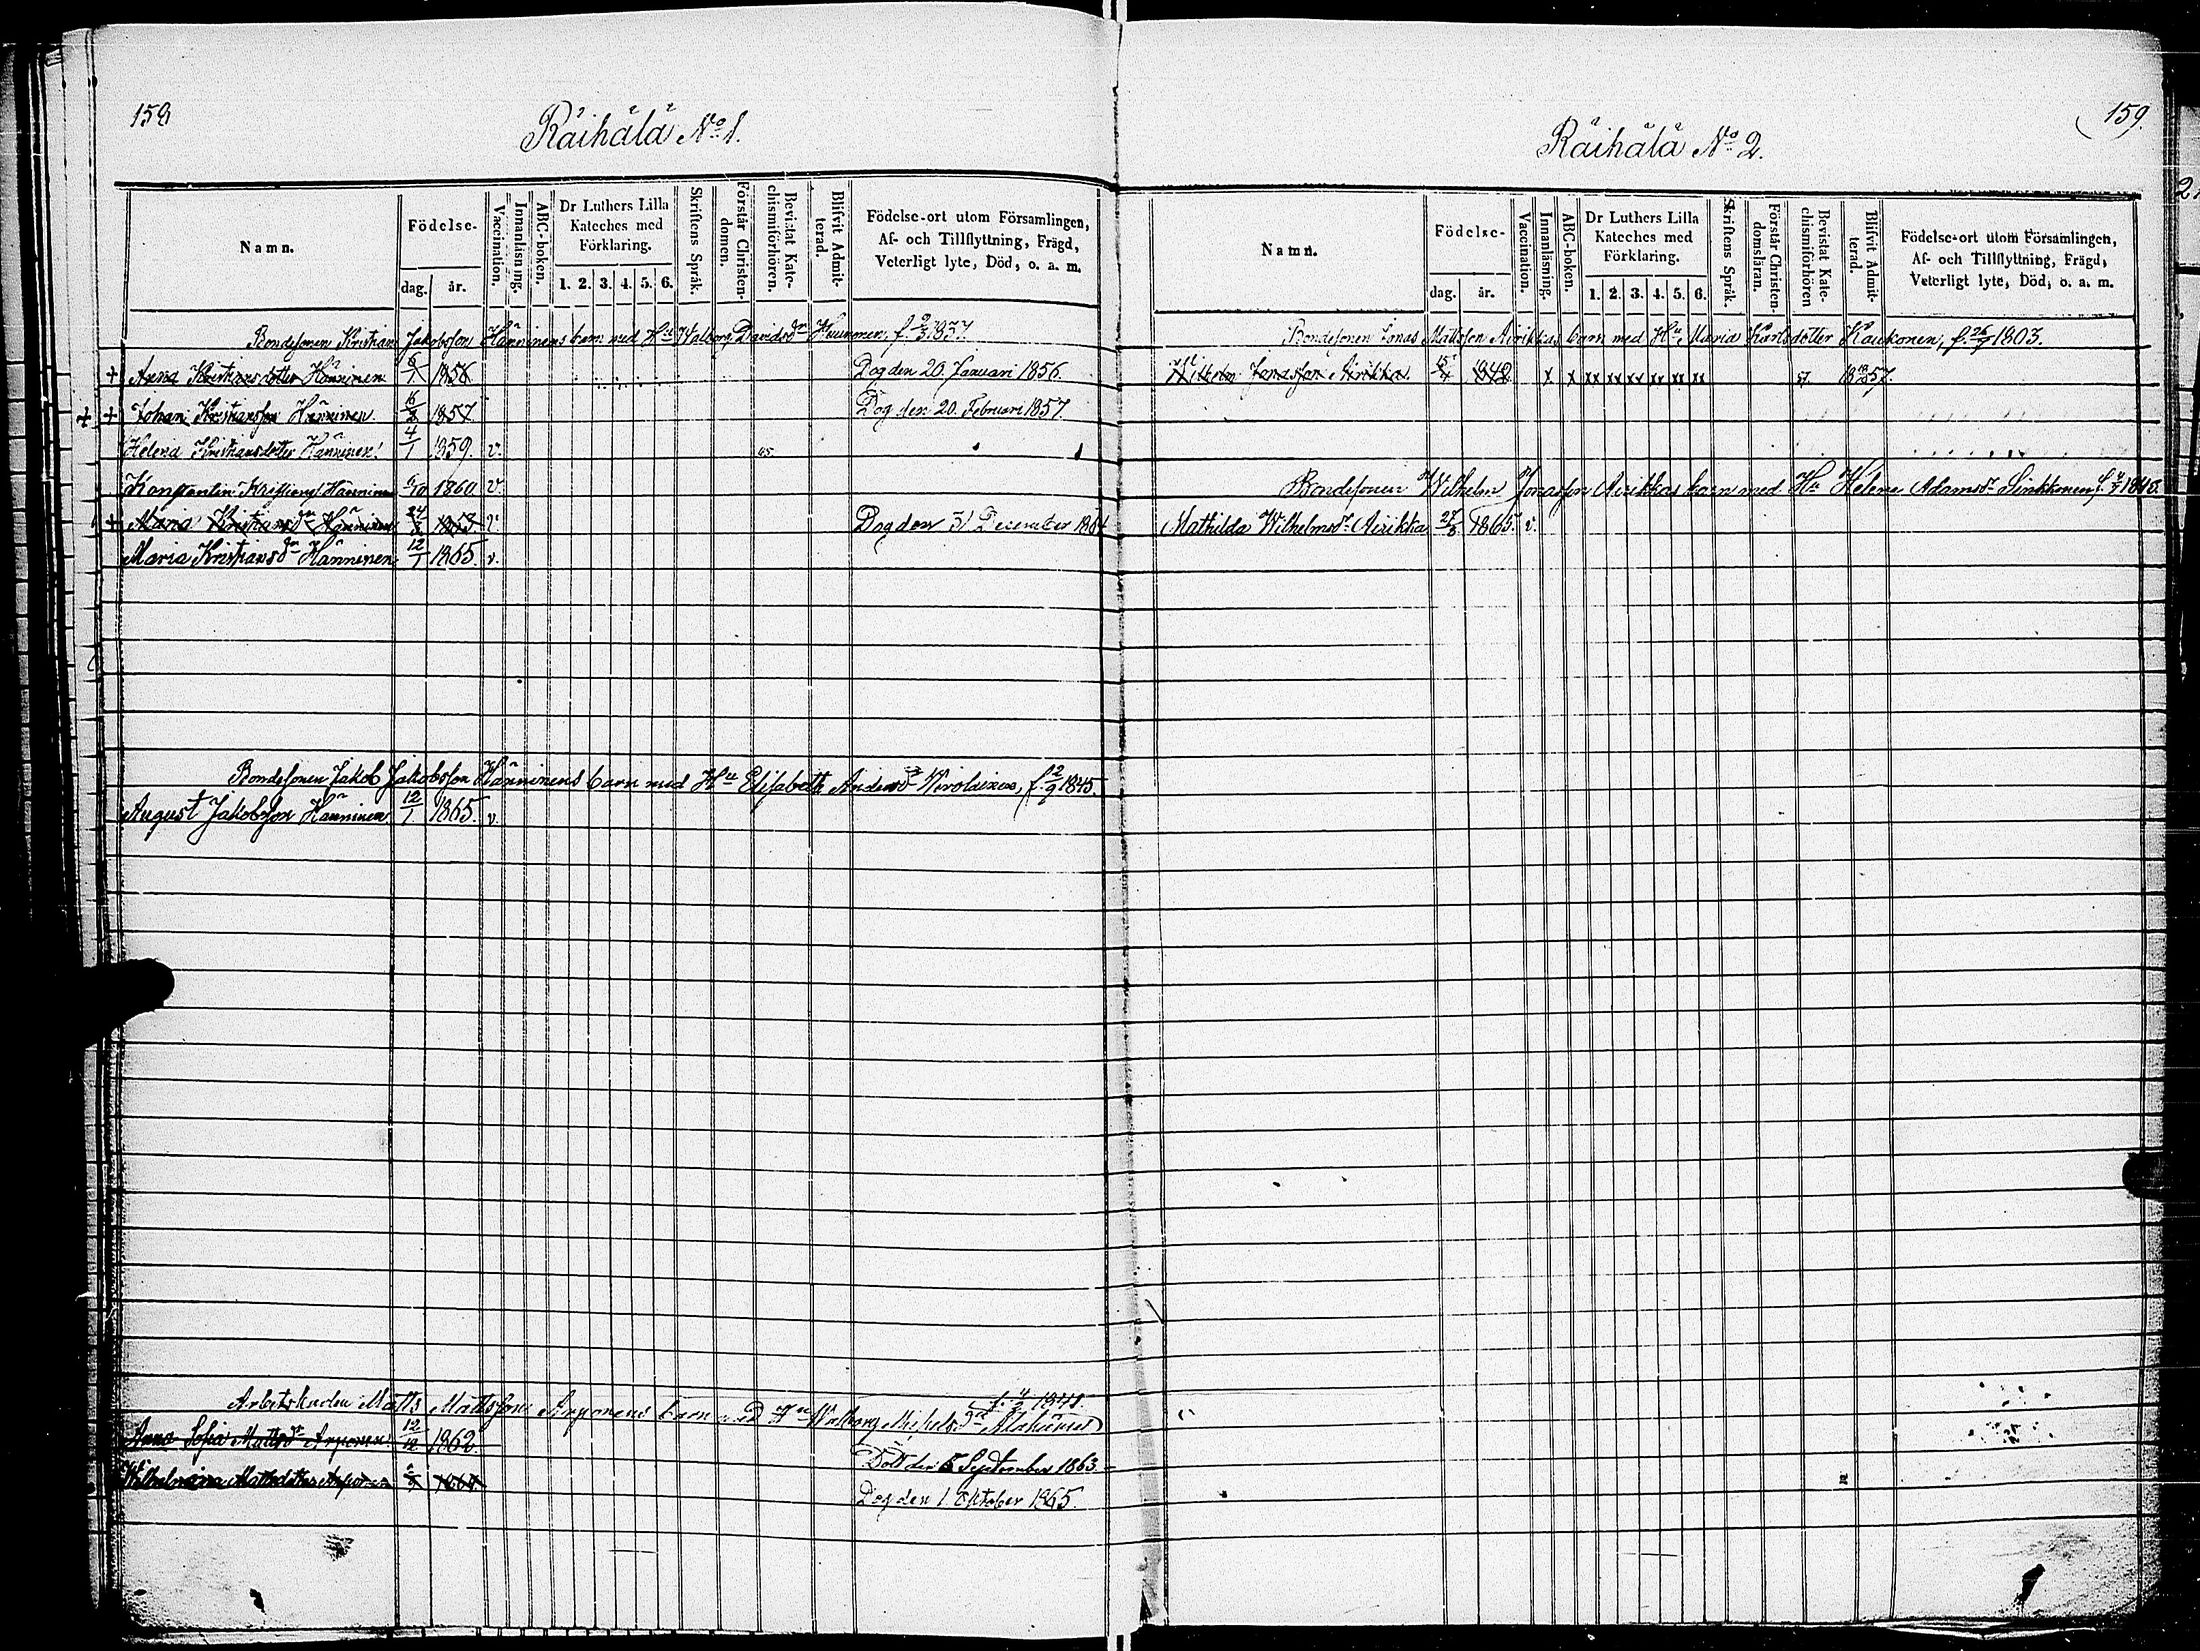 158
Räihälä No 1.
Namn.
Födelse-
dag.
år.
Vaccination.
Innanläsning.
ABC-boken.
Dr Luthers Lilla
Kateches med
Förklaring.
1. 2. 3. 4. 5. 6.
Skriftens Språk.
Förstår Christen-
domen.
Bevistat Kate-
chismiförhören.
Blifvit Admit-
terad.
Födelse-ort utom Församlingen,
Af- och Tillflyttning, Frägd,
Veterligt lyte, Död, o. a. m.
Bondesonen Kristian Jakobsson Hänninens barn med Hu Walborg Davidsdr f. 9/3 1837.
+ Anna Kristiansdotter Hänninen 6/1 1856 Dog den 20. Januari 1856.
+ + Johan Kristiansson Hänninen 1857 Dog den 20. Februari 1857.
Helena Kristiansdotter Hänninen 4/1 1859. v. 65.
Konstantin Kristians. Hänninen 6/10 1860 v.
+ Maria Kristiansdr Hänninen 24/3 1863 v. Dog den 31 December 1864
Maria Kristiansdr Hänninen 12/1 1865. v.
Bondesonen Jakob Jakobsson Hänninens barn med Hu Elisabeth Andersdr Wirolainen, f. 2/9 1845.
August Jakobsson Hänninen 12/1 1865. v.
Arbetskarlen Matts Mattsson Arponens barn med Hu Walborg Mickelsdr f. 4/2 1841.
Anna Sofia Mattsdr Arponen 12/12 1862. Död den 5 September 1863.
Wilhelmina Mattsdotter Arponen 1864. Dog den 1. Oktober 1865.
159.
Räihälä No 2.
Namn.
Födelse-
dag.
år.
Vaccination.
Innanläsning.
ABC-boken.
Dr Luthers Lilla
Kateches med
Förklaring.
1. 2. 3. 4. 5. 6.
Skriftens Språk.
Förstår Christen-
domsläran.
Bevistat Kate-
chismiförhören
Blifvit Admit-
terad.
Födelse-ort utom Församlingen,
Af- och Tillflyttning, Frägd,
Veterligt lyte, Död, o. a. m.
Bondesonen Jonas Mattsson Airikkas barn med Hu Maria Karlsdotter Kaukonen, f. 1803.
Wilhelm Jonasson Airikka. 15/4 1842 x x xx xx xx xx xx xx 57. 1857.
Bondesonen Wilhelm Jonasson Airikkas barn med Hu Helena Adamsdr Sinkkonen,
Mathilda Wilhelmsdr Airikka 27/8 1865. v.